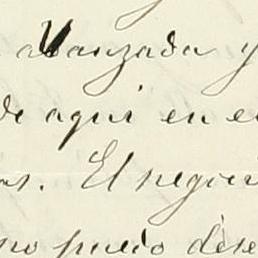 avanzada y
de aqui en
as. El negoci
no puedo dese